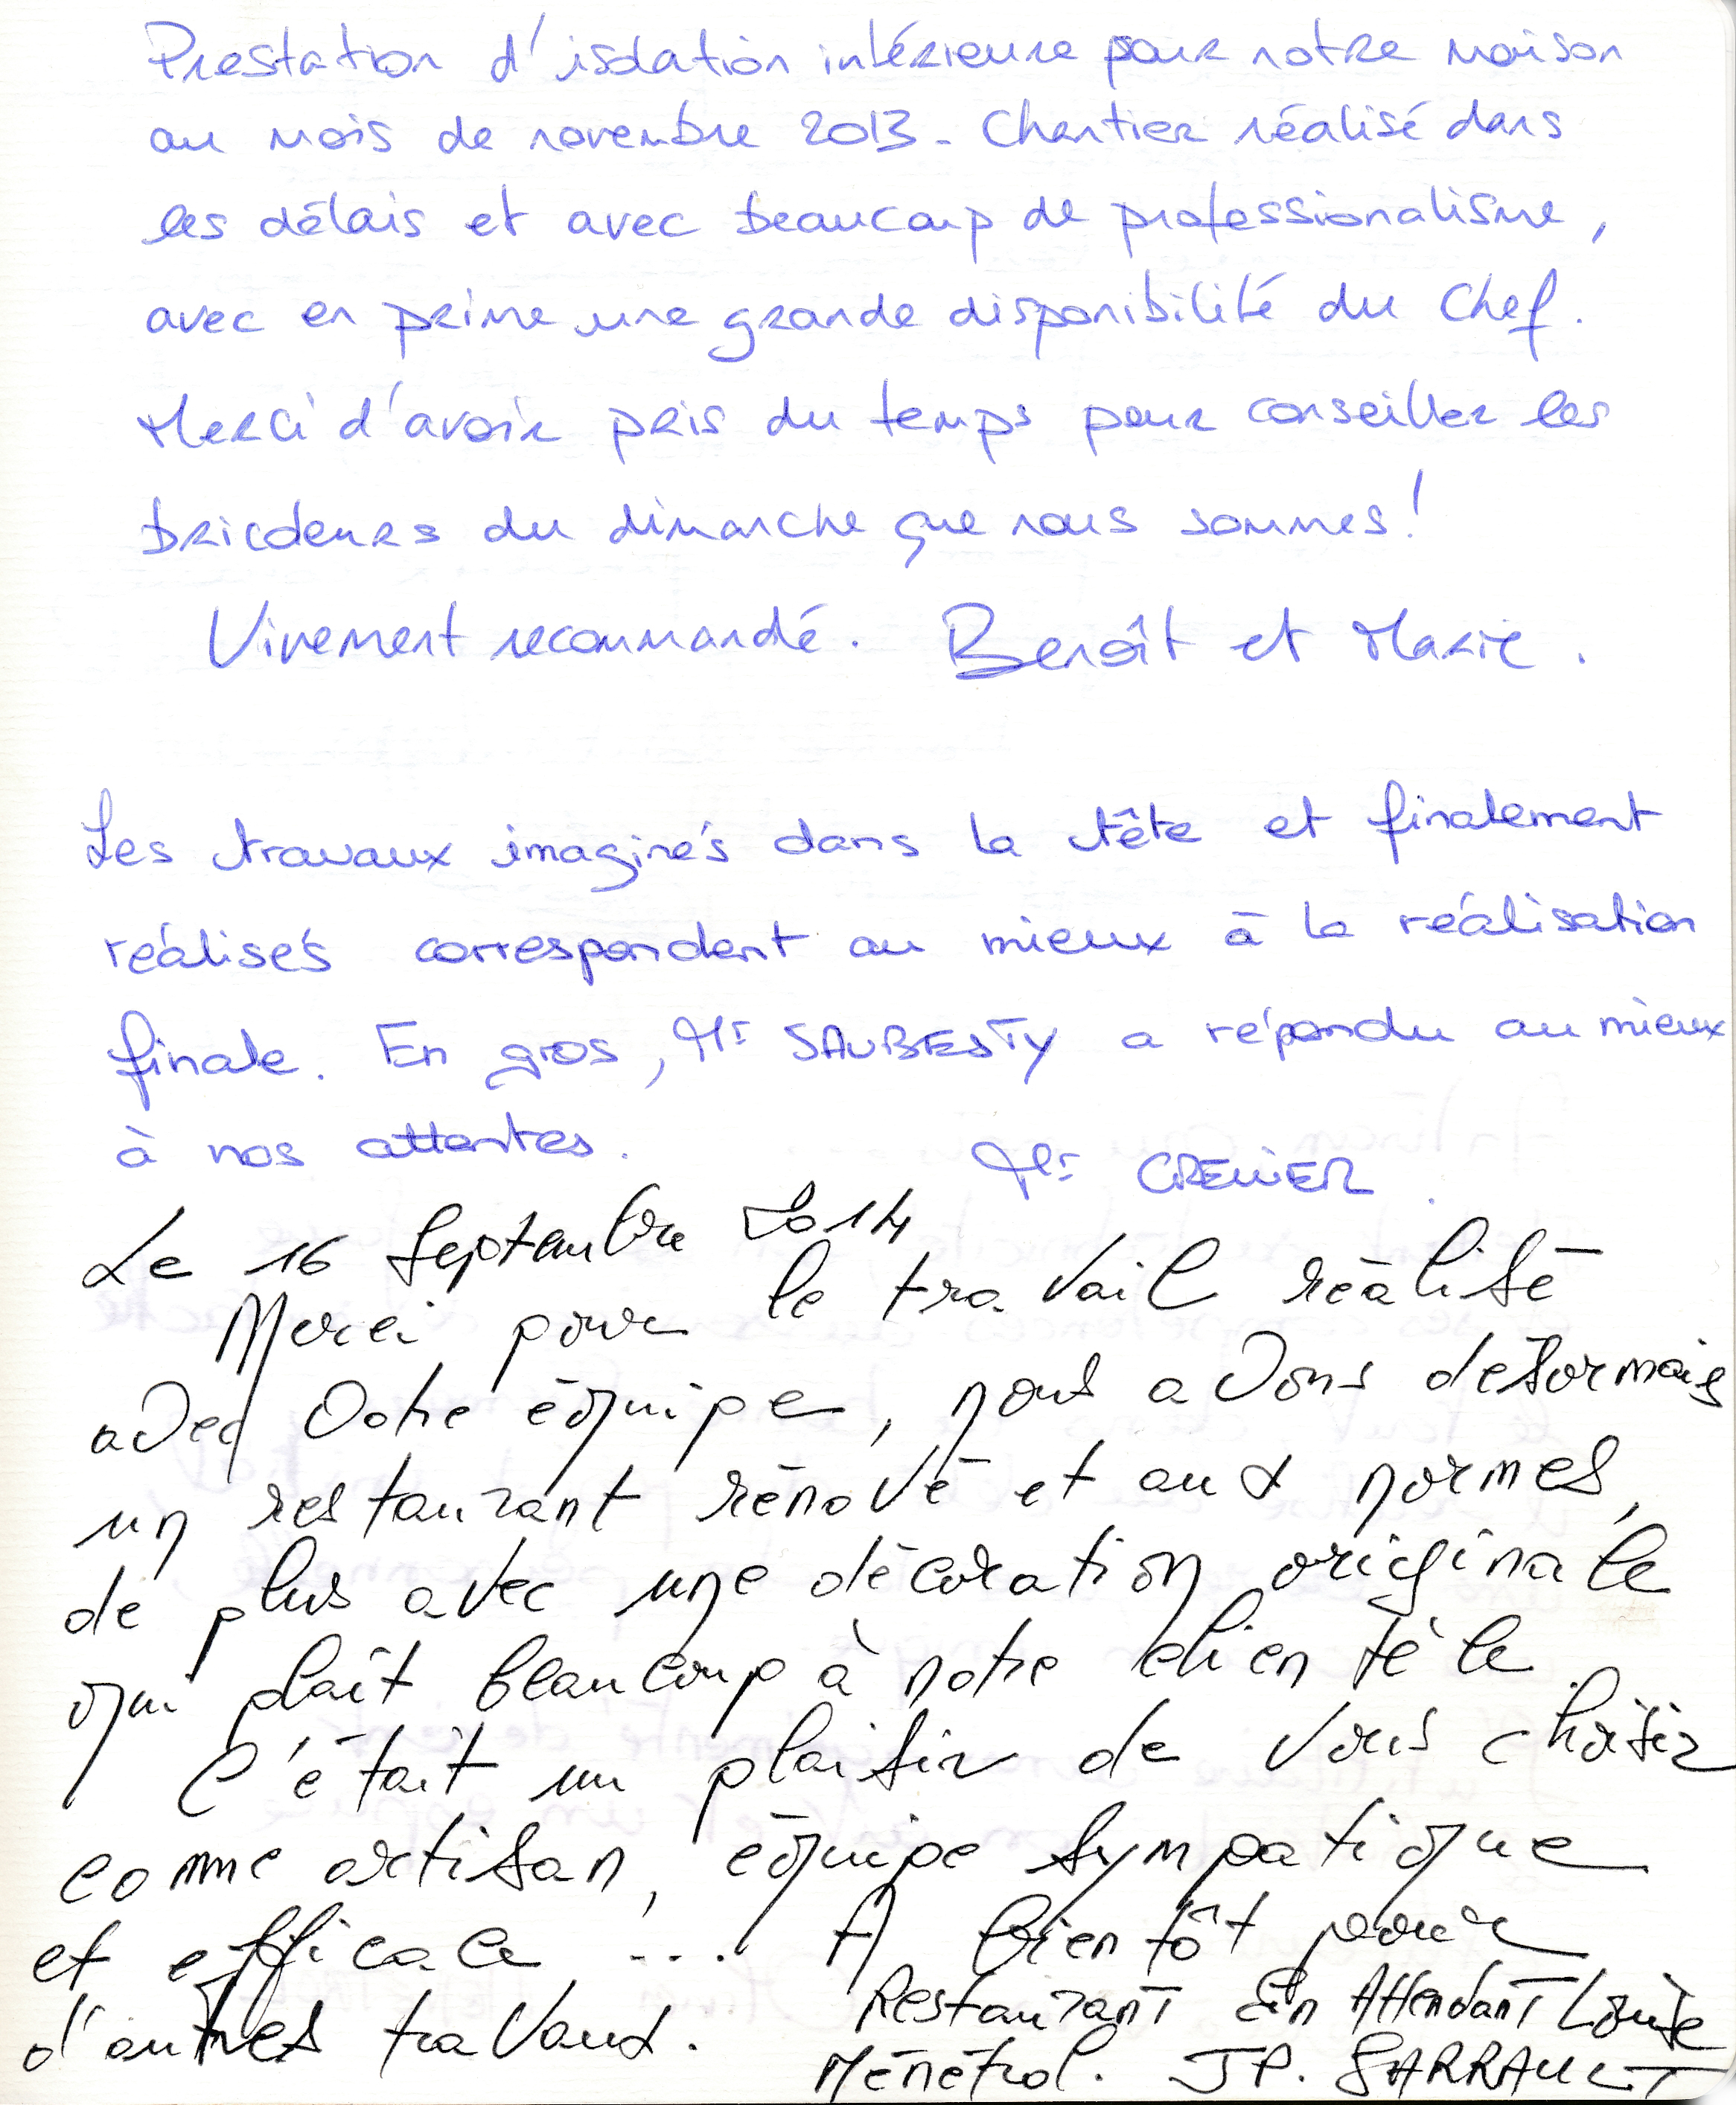 Prestation d'isolation intérieure pour notre maison
au mois de novembre 2013 - Chantier réalisé dans
les délais et avec beaucoup de professionalisme,
avec en prime une grande disponibilité du Chef.
Merci d'avoir pris du temps pour conseiller les
bricoleurs du dimanche que nous sommes!
Vivement recommandé. Benoît et Marie.
Les travaux imaginés dans la tête et finalement
réalisés correspondent au mieux à la réalisation
finale. En gros, Mr SAUBESTY a répondu au mieux
à nos attentes. Mr GRENIER.
Le 16 Septembre 2014
Merci pour le travail réalisé
avec votre équipe, nous avons desormais
un restaurant rénové et aux normes,
de plus avec une décoration originale
qui plaît beaucoup à notre clientèle
C'était un plaisir de vous choisir
comme artisan, équipe sympatique
et efficace .... A bientôt pour
d'autres travaux. Restaurant En Attendant Louise
Ménétrol. JP. SARRAULT